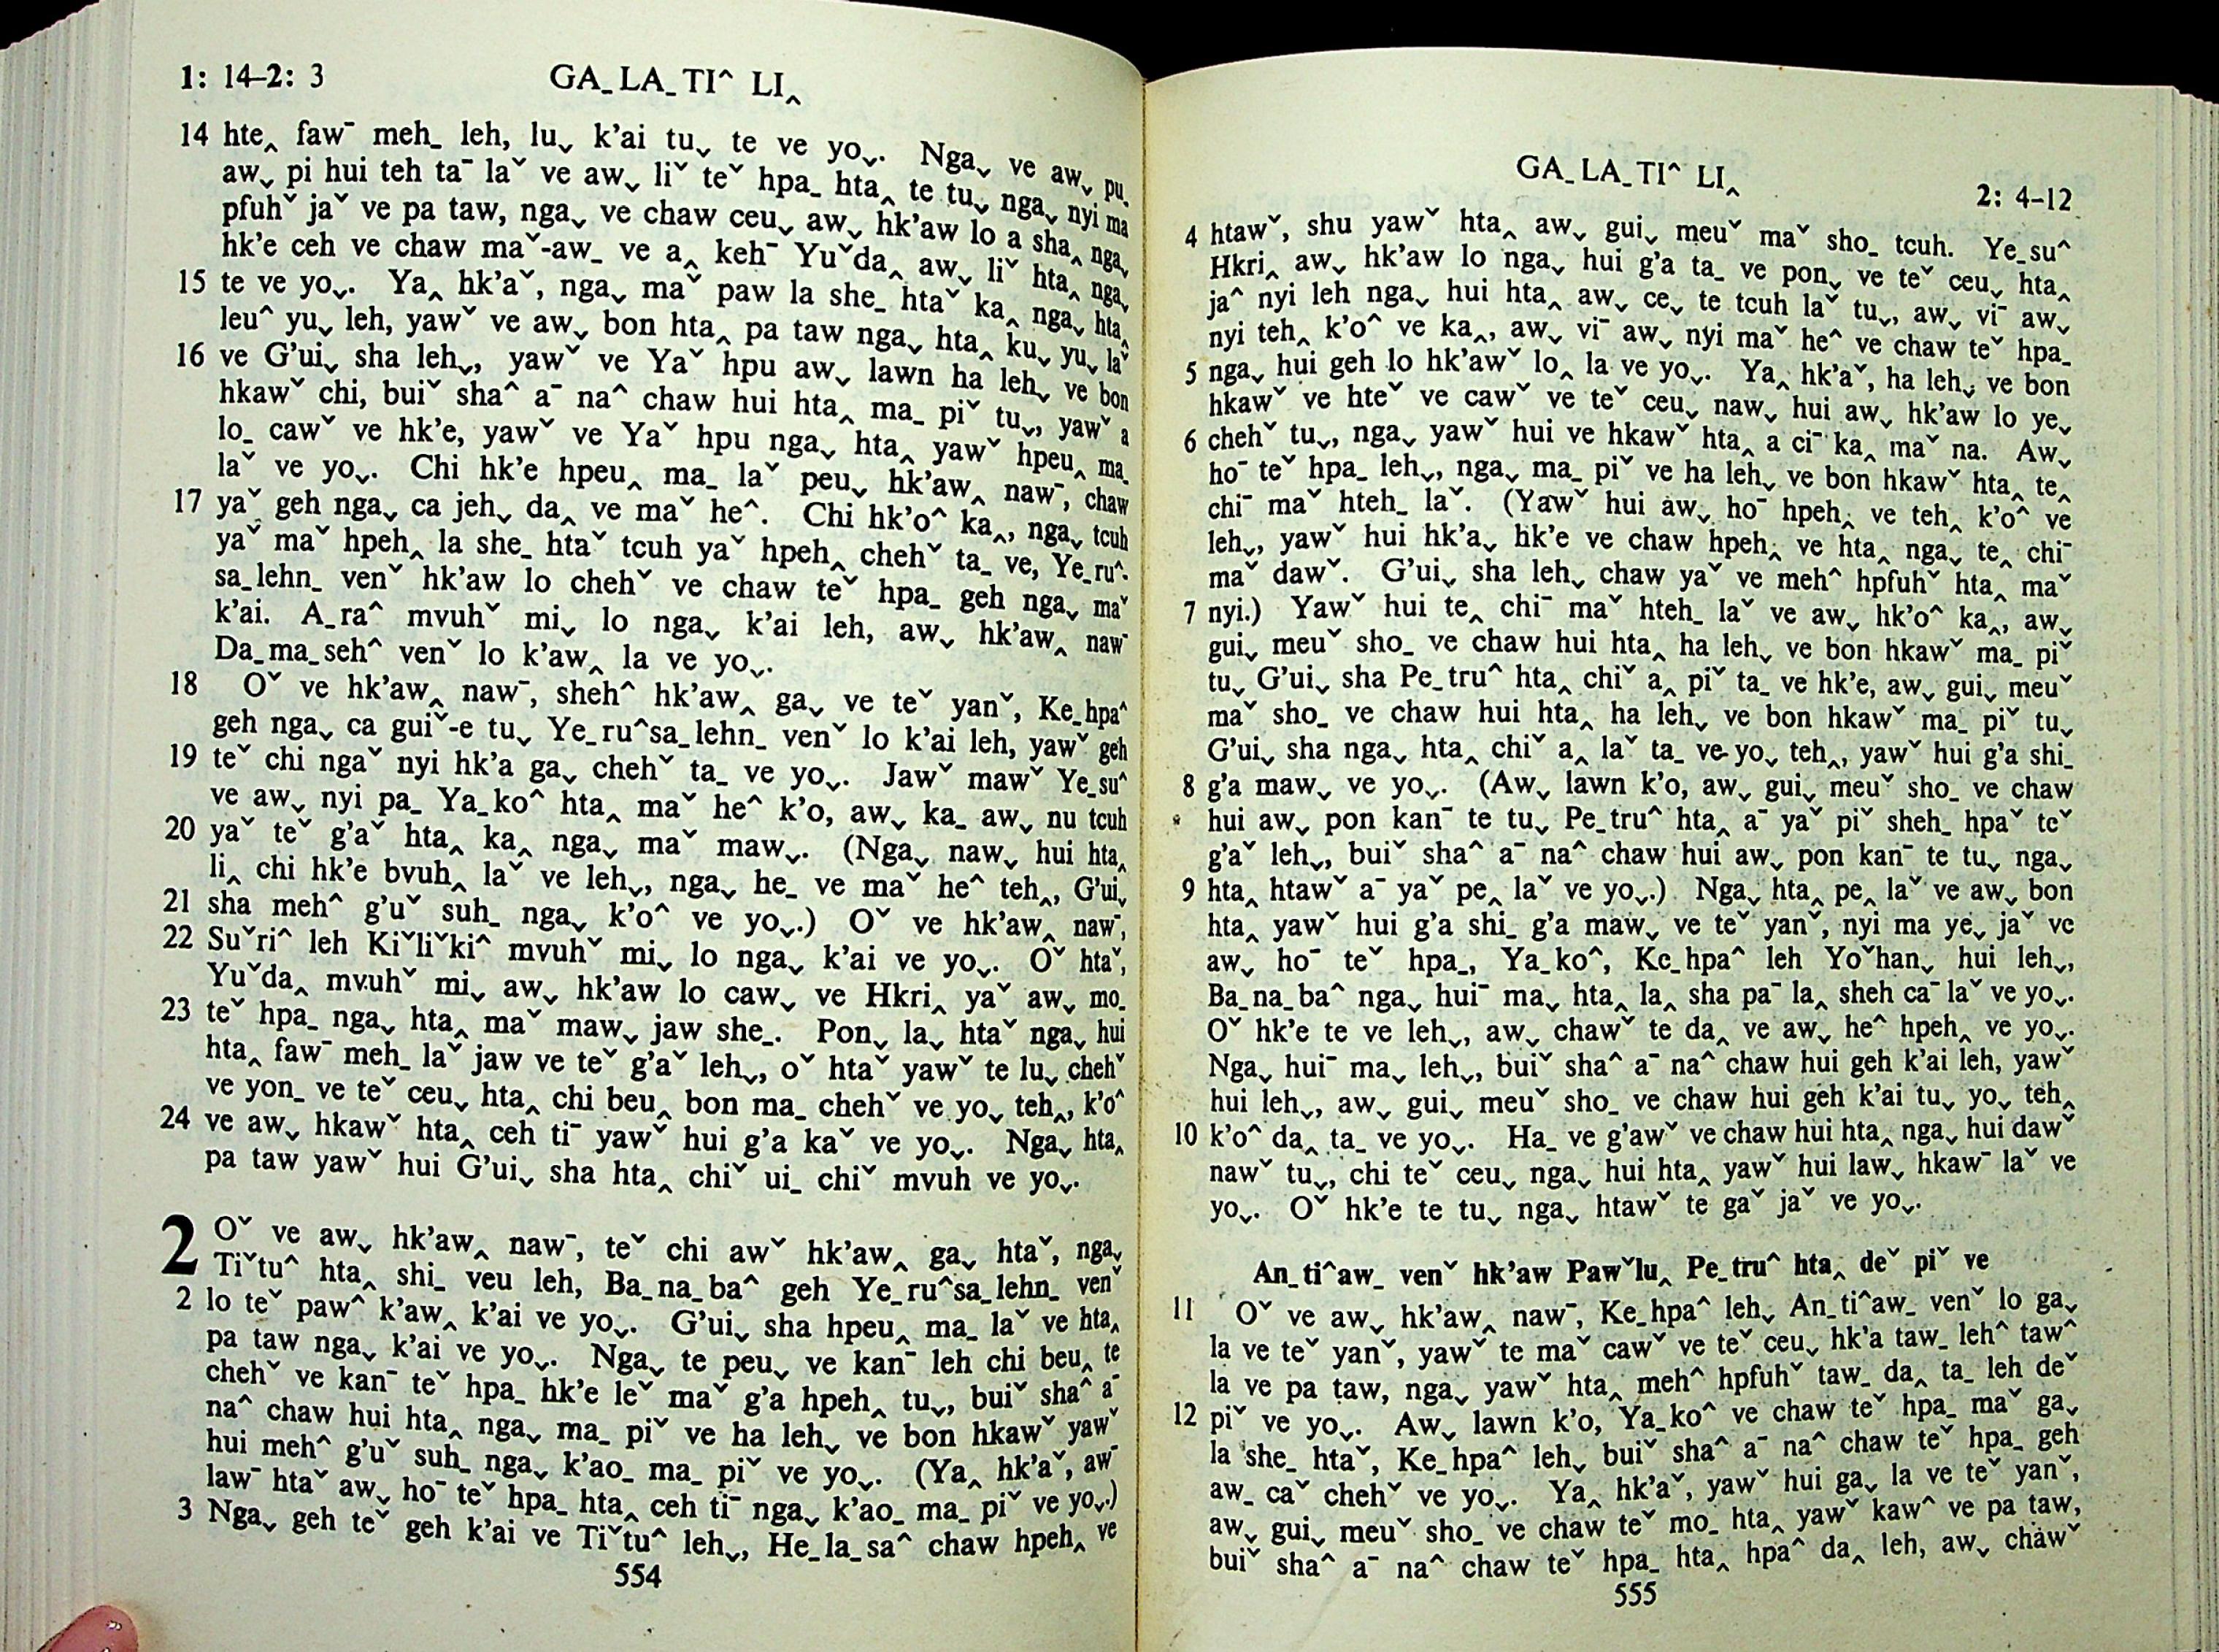 1: 14–2: 3
GA_ LA_ TI^ LI‸
14 hte‸ faw¯ meh_ leh, lu ̬ k’ai tu ̬ te ve yo ̬. Nga ̬ ve aw ̬ pu_
aw ̬ pi hui teh ta¯ laˇ ve aw ̬ liˇ teˇ hpa_ hta‸ te tu ̬ nga ̬ nyi ma
pfuhˇ jaˇ ve pa taw, nga ̬ ve chaw ceu ̬ aw ̬ hk’aw lo a sha‸ nga ̬
hk’e ceh ve chaw maˇ-aw_ ve a‸ keh¯ Yuˇda‸ aw ̬ liˇ hta‸ nga ̬
15 te ve yo ̬. Ya‸ hk’aˇ, nga ̬ maˇ paw la she_ htaˇ ka‸ nga ̬ hta‸
leu^ yu ̬ leh, yawˇ ve aw ̬ bon hta‸ pa taw nga ̬ hta‸ ku ̬ yu ̬ laˇ
16 ve G’ui ̬ sha leh ̬, yawˇ ve Yaˇ hpu aw ̬ lawn ha leh ̬ ve bon
hkawˇ chi, buiˇ sha^ a¯ na^ chaw hui hta‸ ma_ piˇ tu ̬, yawˇ a
lo_ cawˇ ve hk’e, yawˇ ve Yaˇ hpu nga ̬ hta‸ yawˇ hpeu‸ ma_
laˇ ve yo ̬. Chi hk’e hpeu‸ ma_ laˇ peu ̬ hk’aw‸ naw¯, chaw
17 yaˇ geh nga ̬ ca jeh ̬ da‸ ve maˇ he^. Chi hk’o^ ka‸, nga ̬ tcuh
yaˇ maˇ hpeh‸ la she_ htaˇ tcuh yaˇ hpeh‸ chehˇ ta_ ve, Ye_ru^-
sa_lehn_ venˇ hk’aw lo chehˇ ve chaw teˇ hpa_ geh nga ̬ maˇ
k’ai. A_ra^ mvuhˇ mi ̬ lo nga ̬ k’ai leh, aw ̬ hk’aw‸ naw¯
Da_ma_seh^ venˇ lo k’aw‸ la ve yo ̬.
18 Oˇ ve hk’aw‸ naw¯, sheh^ hk’aw‸ ga ̬ ve teˇ yanˇ, Ke_hpa^
geh nga ̬ ca guiˇ-e tu ̬ Ye_ru^sa_lehn_ venˇ lo k’ai leh, yawˇ geh
19 teˇ chi ngaˇ nyi hk’a ga ̬ chehˇ ta_ ve yo ̬. Jawˇ mawˇ Ye_su^
ve aw ̬ nyi pa_ Ya_ko^ hta‸ maˇ he^ k’o, aw ̬ ka_ aw ̬ nu tcuh
20 yaˇ teˇ g’aˇ hta‸ ka‸ nga ̬ maˇ maw ̬. (Nga ̬ naw ̬ hui hta‸
li‸ chi hk’e bvuh‸ laˇ ve leh ̬, nga ̬ he_ ve maˇ he^ teh‸, G’ui ̬
21 sha meh^ g’uˇ suh_ nga ̬ k’o^ ve yo ̬.) Oˇ ve hk’aw‸ naw¯,
22 Suˇri^ leh Kiˇliˇki^ mvuhˇ mi ̬ lo nga ̬ k’ai ve yo ̬. Oˇ htaˇ,
Yuˇda‸ mvuhˇ mi ̬ aw ̬ hk’aw lo caw ̬ ve Hkri‸ yaˇ aw ̬ mo_
23 teˇ hpa_ nga ̬ hta‸ maˇ maw ̬ jaw she_. Pon ̬ la ̬ htaˇ nga ̬ hui
hta‸ faw¯ meh_ laˇ jaw ve teˇ g’aˇ leh ̬, oˇ htaˇ yawˇ te lu ̬ chehˇ
ve yon_ ve teˇ ceu ̬ hta‸ chi beu‸ bon ma_ chehˇ ve yo ̬ teh‸, k’o^
24 ve aw ̬ hkawˇ hta‸ ceh ti¯ yawˇ hui g’a kaˇ ve yo ̬. Nga ̬ hta‸
pa taw yawˇ hui G’ui ̬ sha hta‸ chiˇ ui_ chiˇ mvuh ve yo ̬.
2 Oˇ ve aw ̬ hk’aw‸ naw¯, teˇ chi awˇ hk’aw‸ ga ̬ htaˇ, nga ̬
Tiˇtu^ hta‸ shi_ veu leh, Ba_na_ba^ geh Ye_ru^sa_lehn_ venˇ
2 lo teˇ paw^ k’aw‸ k’ai ve yo ̬. G’ui ̬ sha hpeu‸ ma_ laˇ ve hta‸
pa taw nga ̬ k’ai ve yo ̬. Nga ̬ te peu ̬ ve kan¯ leh chi beu‸ te
chehˇ ve kan¯ teˇ hpa_ hk’e leˇ maˇ g’a hpeh‸ tu ̬, buiˇ sha^ a¯
na^ chaw hui hta‸ nga ̬ ma_ piˇ ve ha leh ̬ ve bon hkawˇ yawˇ
hui meh^ g’uˇ suh_ nga ̬ k’ao_ ma_ piˇ ve yo ̬. (Ya‸ hk’aˇ, aw¯
law¯ htaˇ aw ̬ ho¯ teˇ hpa_ hta‸ ceh ti¯ nga ̬ k’ao_ ma_ piˇ ve yo ̬.)
3 Nga ̬ geh teˇ geh k’ai ve Tiˇtu^ leh ̬, He_la_sa^ chaw hpeh‸ ve
554
GA_ LA_ TI^ LI‸
2: 4–12
4 htawˇ, shu yawˇ hta‸ aw ̬ gui ̬ meuˇ maˇ sho_ tcuh. Ye_su^
Hkri‸ aw ̬ hk’aw lo nga ̬ hui g’a ta_ ve pon ̬ ve teˇ ceu ̬ hta‸
ja^ nyi leh nga ̬ hui hta‸ aw ̬ ce ̬ te tcuh laˇ tu ̬, aw ̬ vi¯ aw ̬
nyi teh‸ k’o^ ve ka‸, aw ̬ vi¯ aw ̬ nyi maˇ he^ ve chaw teˇ hpa_
5 nga ̬ hui geh lo hk’awˇ lo‸ la ve yo ̬. Ya‸ hk’aˇ, ha leh ̬ ve bon
hkawˇ ve hteˇ ve cawˇ ve teˇ ceu ̬ naw ̬ hui aw ̬ hk’aw lo ye ̬
6 chehˇ tu ̬, nga ̬ yawˇ hui ve hkawˇ hta‸ a ci¯ ka‸ maˇ na. Aw ̬
ho¯ teˇ hpa_ leh ̬, nga ̬ ma_ piˇ ve ha leh ̬ ve bon hkawˇ hta‸ te‸
chi¯ maˇ hteh_ laˇ. (Yawˇ hui aw ̬ ho¯ hpeh‸ ve teh‸ k’o^ ve
leh ̬, yawˇ hui hk’a ̬ hk’e ve chaw hpeh‸ ve hta‸ nga ̬ te‸ chi¯
maˇ dawˇ. G’ui ̬ sha leh ̬ chaw yaˇ ve meh^ hpfuhˇ hta‸ maˇ
7 nyi.) Yawˇ hui te‸ chi¯ maˇ hteh_ laˇ ve aw ̬ hk’o^ ka‸, aw ̬
gui ̬ meuˇ sho_ ve chaw hui hta‸ ha leh ̬ ve bon hkawˇ ma_ piˇ
tu ̬ G’ui ̬ sha Pe_tru^ hta‸ chiˇ a‸ piˇ ta_ ve hk’e, aw ̬ gui ̬ meuˇ
maˇ sho_ ve chaw hui hta‸ ha leh ̬ ve bon hkawˇ ma_ piˇ tu ̬
G’ui ̬ sha nga ̬ hta‸ chiˇ a‸ laˇ ta_ ve yo ̬ teh‸, yawˇ hui g’a shi_
8 g’a maw ̬ ve yo ̬. (Aw ̬ lawn k’o, aw ̬ gui ̬ meuˇ sho_ ve chaw
hui aw ̬ pon kan¯ te tu ̬ Pe_tru^ hta‸ a¯ yaˇ piˇ sheh_ hpaˇ teˇ
g’aˇ leh ̬, buiˇ sha^ a¯ na^ chaw hui aw ̬ pon kan¯ te tu ̬ nga ̬
9 hta‸ htawˇ a¯ yaˇ pe‸ laˇ ve yo ̬.) Nga ̬ hta‸ pe‸ laˇ ve aw ̬ bon
hta‸ yawˇ hui g’a shi_ g’a maw ̬ ve teˇ yanˇ, nyi ma ye ̬ jaˇ ve
aw ̬ ho¯ teˇ hpa_, Ya_ko^, Ke_hpa^ leh Yoˇhan ̬ hui leh ̬,
Ba_na_ba^ nga ̬ hui¯ ma ̬ hta‸ la‸ sha pa¯ la‸ sheh ca¯ laˇ ve yo ̬.
Oˇ hk’e te ve leh ̬, aw ̬ chawˇ te da‸ ve aw ̬ he^ hpeh‸ ve yo ̬.
Nga ̬ hui¯ ma ̬ leh ̬, buiˇ sha^ a¯ na^ chaw hui geh k’ai leh, yawˇ
hui leh ̬, aw ̬ gui ̬ meuˇ sho_ ve chaw hui geh k’ai tu ̬ yo ̬ teh‸
10 k’o^ da‸ ta_ ve yo ̬. Ha_ ve g’awˇ ve chaw hui hta‸ nga ̬ hui dawˇ
nawˇ tu ̬, chi teˇ ceu ̬ nga ̬ hui hta‸ yawˇ hui law ̬ hkaw¯ laˇ ve
yo ̬. Oˇ hk’e te tu ̬ nga ̬ htawˇ te gaˇ jaˇ ve yo ̬.
An_ti^aw_ venˇ hk’aw Pawˇlu‸ Pe_tru^ hta‸ deˇ piˇ ve
11 Oˇ ve aw ̬ hk’aw‸ naw¯, Ke_hpa^ leh ̬ An_ti^aw_ venˇ lo ga ̬
la ve teˇ yanˇ, yawˇ te maˇ cawˇ ve teˇ ceu ̬ hk’a taw_ leh^ taw^
la ve pa taw, nga ̬ yawˇ hta‸ meh^ hpfuhˇ taw_ da‸ ta_ leh deˇ
12 piˇ ve yo ̬. Aw ̬ lawn k’o, Ya_ko^ ve chaw teˇ hpa_ maˇ ga ̬
la she_ htaˇ, Ke_hpa^ leh ̬ buiˇ sha^ a¯ na^ chaw teˇ hpa_ geh
aw_ caˇ chehˇ ve yo ̬. Ya‸ hk’aˇ, yawˇ hui ga ̬ la ve teˇ yanˇ,
aw ̬ gui ̬ meuˇ sho_ ve chaw teˇ mo_ hta‸ yawˇ kaw^ ve pa taw,
buiˇ sha^ a¯ na^ chaw teˇ hpa_ hta‸ hpa^ da‸ leh, aw ̬ chawˇ
555